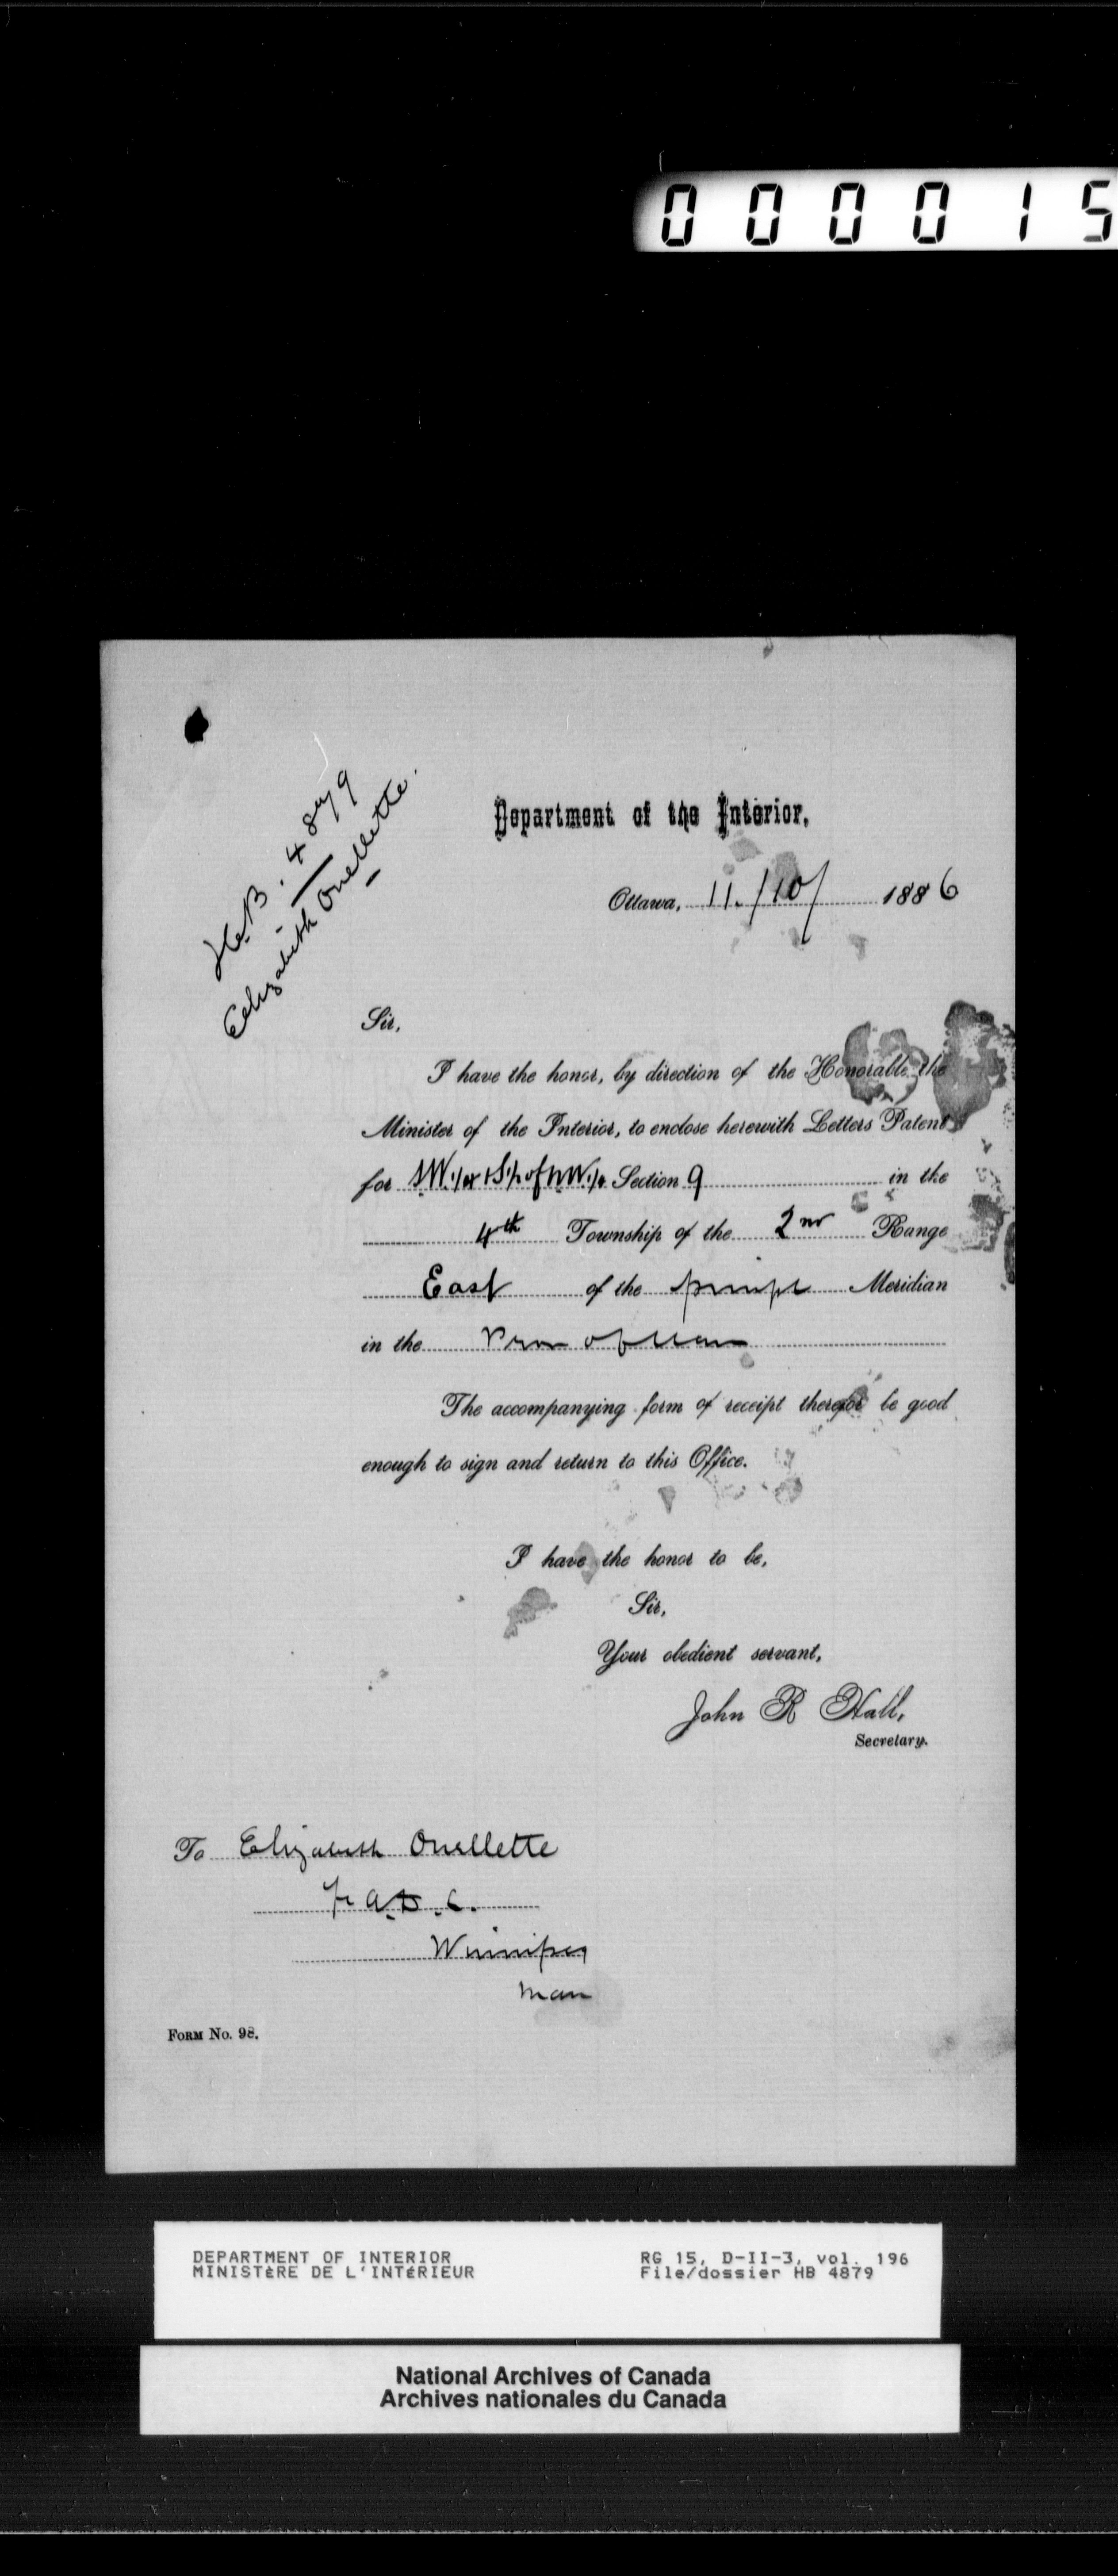 000015
H.B. 4879
Elizabeth Ouellette.
Department of the Interior,
Ottawa, 11./10/ 1886
Sir,
I have the honor, by direction of the Honorable the
Minister of the Interior, to enclose herewith Letters Patent
for S.W.1/4 + S.1/2 of N.W.1/4 Section 9 in the
4th Township of the 2nd Range
East of the Meridian
in the of
The accompanying form of receipt therefor be good
enough to sign and return to this Office.
I have the honor to be,
Sir,
Your obedient servant,
John R Hall,
Secretary.
To Elizabeth Ouellette
Winnipeg
Man
FORM No. 98.
DEPARTMENT OF INTERIOR
MINISTÈRE DE L'INTÉRIEUR
RG 15, D-II-3, vol. 196
File/dossier HB 4879
National Archives of Canada
Archives nationales du Canada